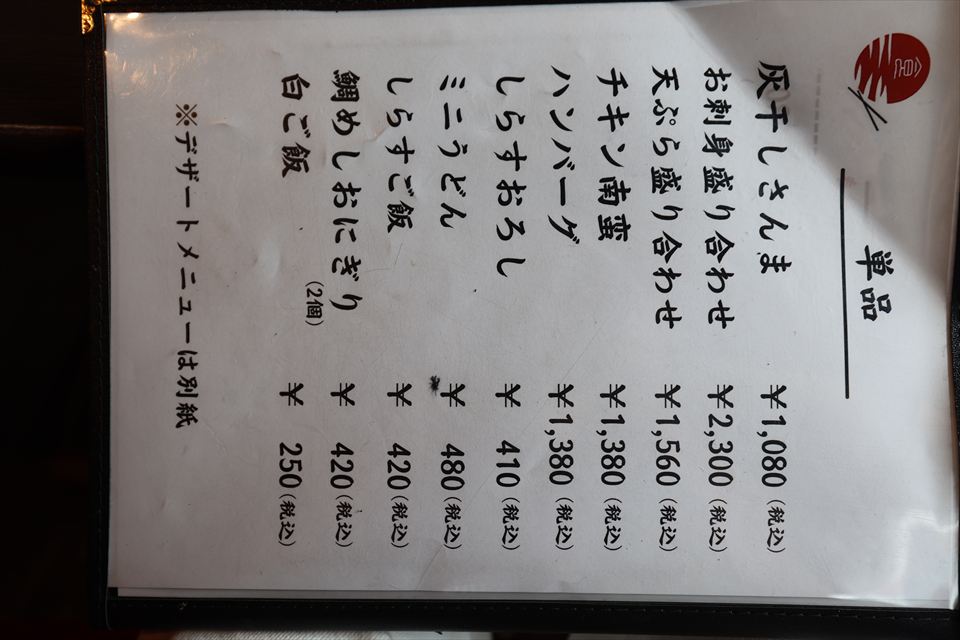 単品
灰干しさんま ¥1,080(税込)
お刺身盛り合わせ ¥2,300(税込)
天ぷら盛り合わせ ¥1,560(税込)
チキン南蛮 ¥1,380(税込)
ハンバーグ ¥1,380(税込)
しらすおろし ¥ 410(税込)
ミニうどん ¥ 480(税込)
しらすご飯 ¥ 420(税込)
鯛めしおにぎり(2個) ¥ 420(税込)
白ご飯 ¥ 250(税込)
※デザートメニューは別紙